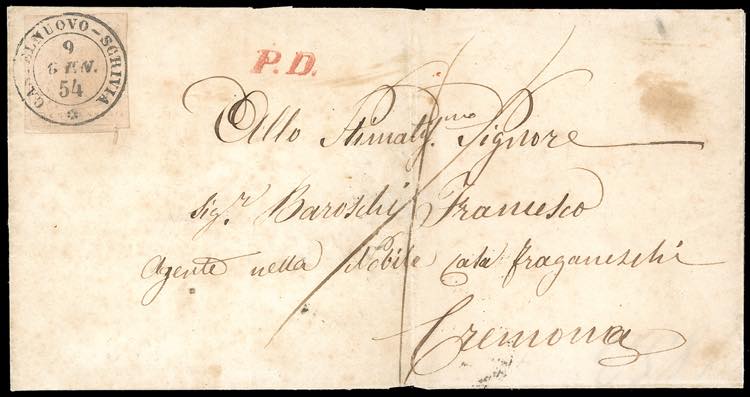 CASTELNUOVO-SCRIVIA
9
GEN.
54
P.D.
Allo Stimatis.mo Signore
Sig.r Baroschi Francesco
Agente nella Nobile Casa Fraganeschi
Cremona